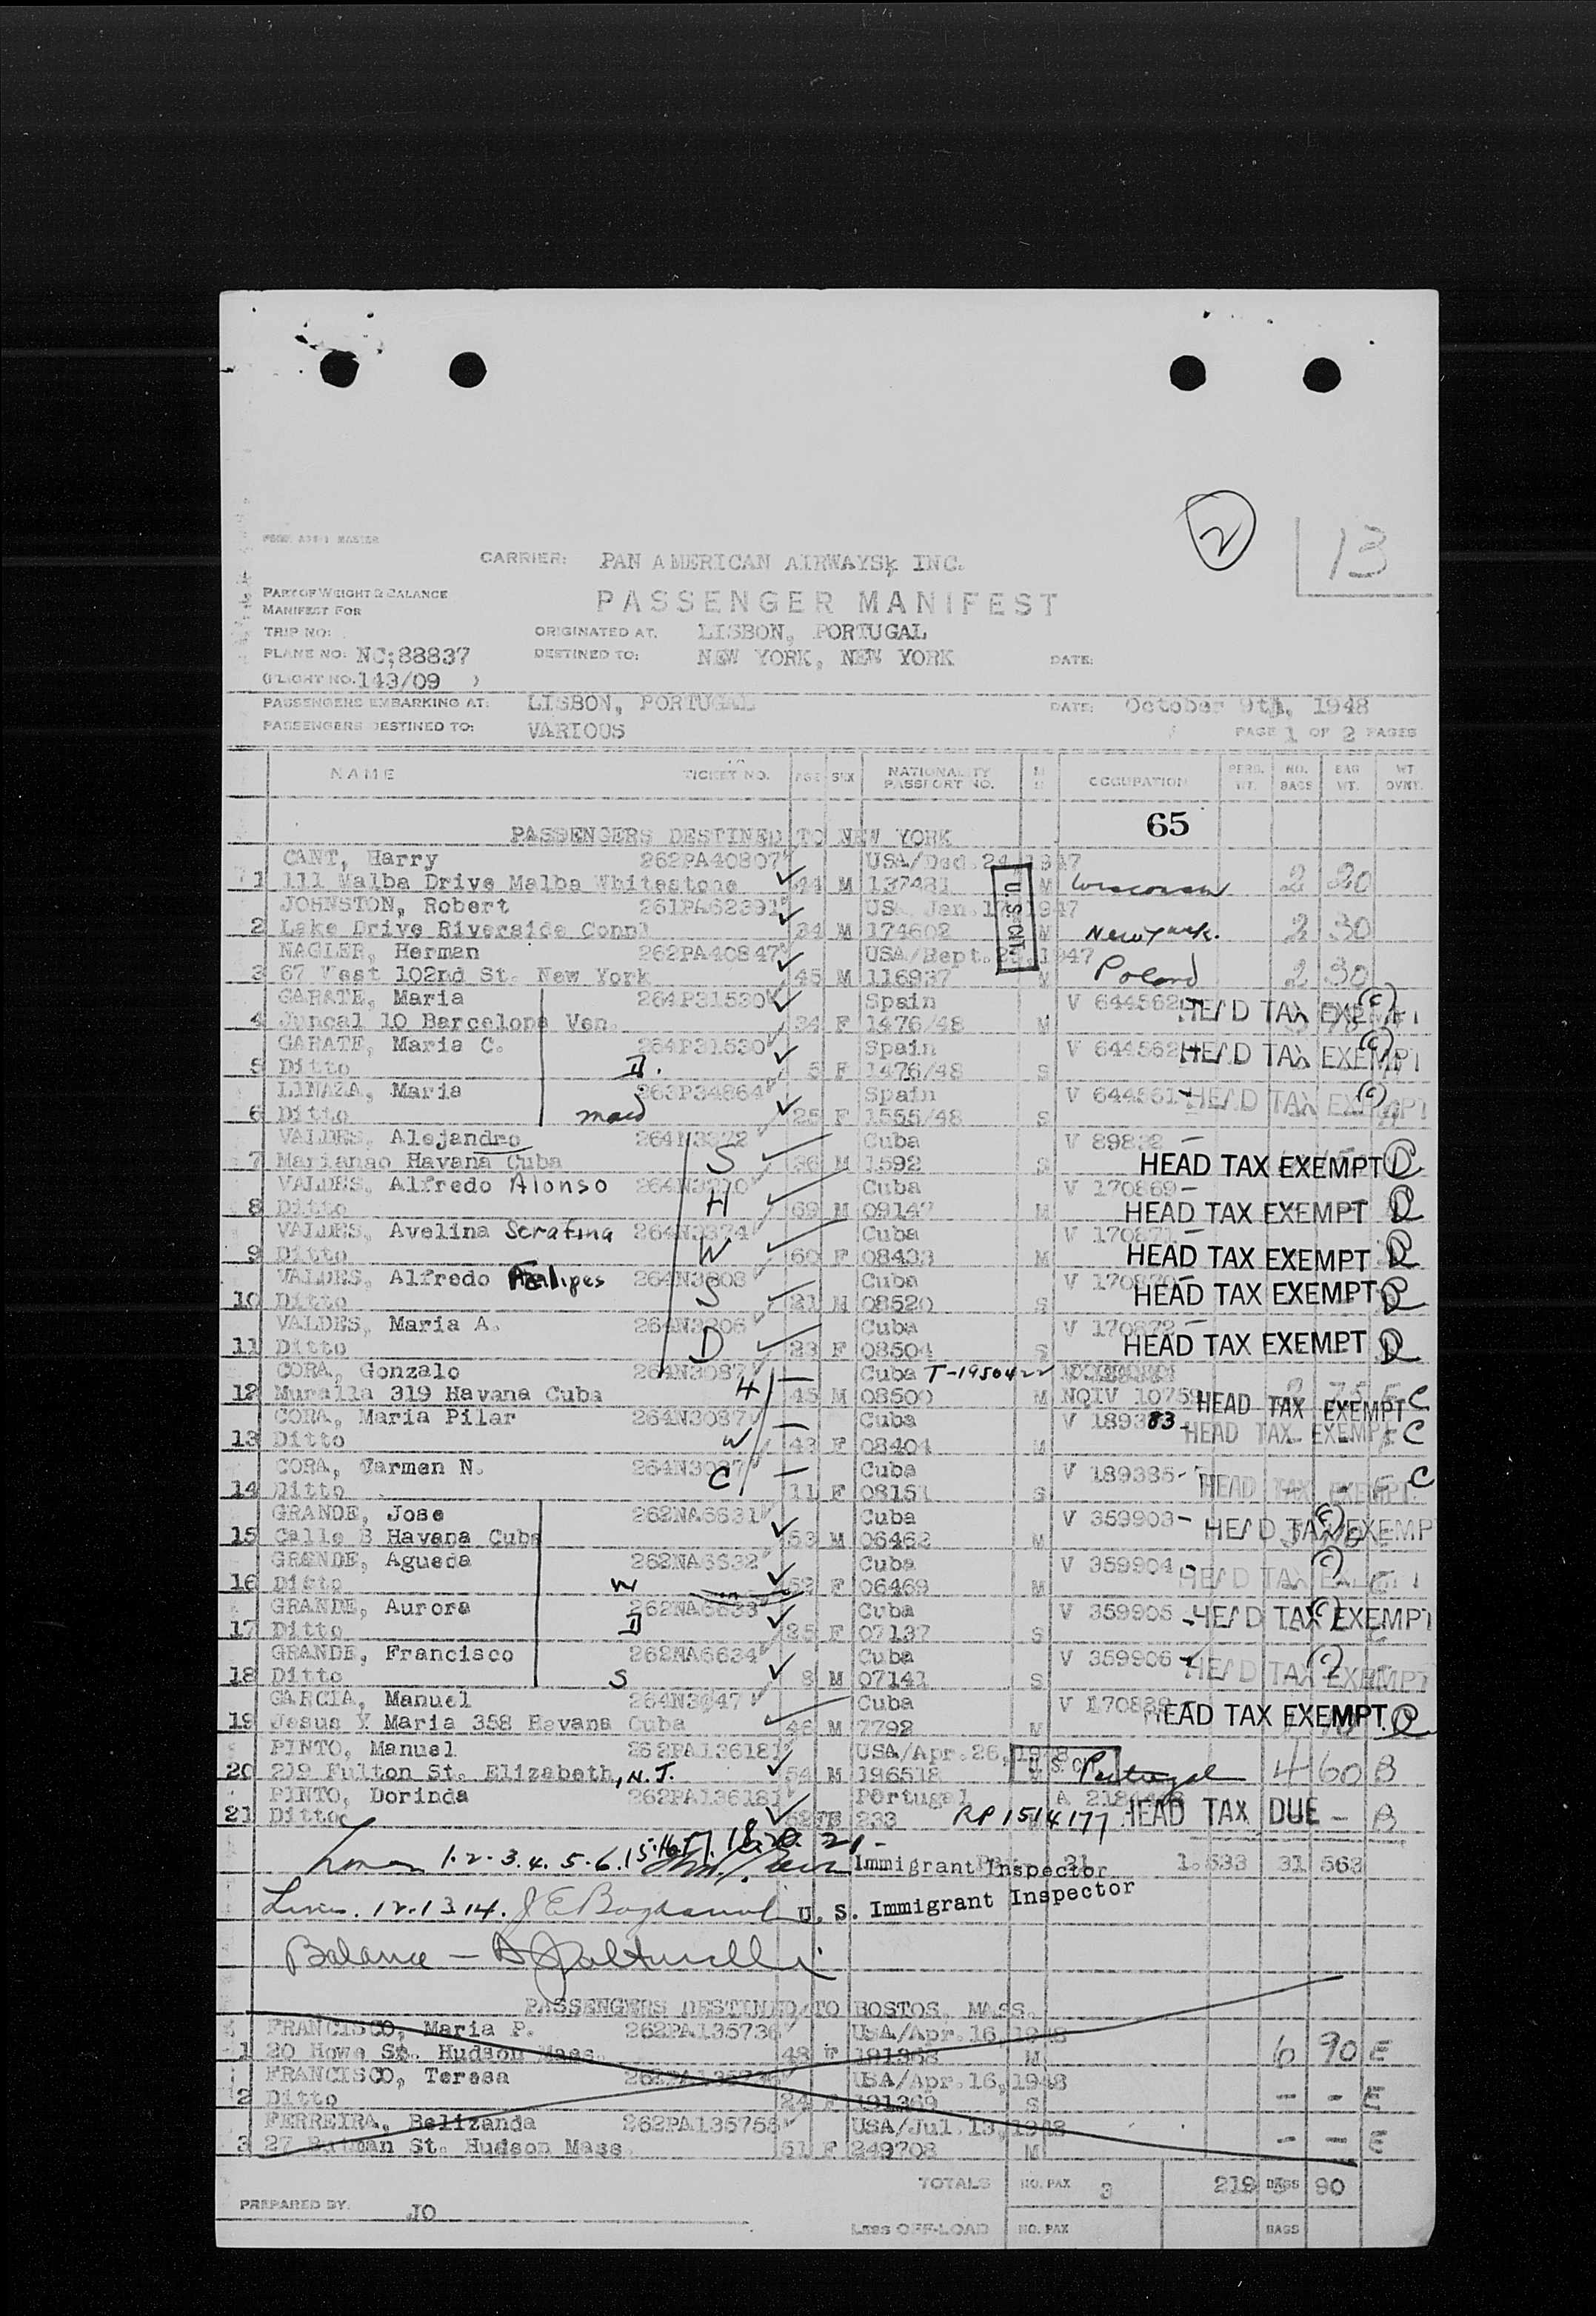 2
13
FORM MASTER
CARRIER: PAN AMERICAN AIRWAYS, INC.
PART OF WEIGHT & BALANCE
MANIFEST FOR
PASSENGER MANIFEST
TRIP NO: ORIGINATED AT. LISBON, PORTUGAL
PLANE NO: NC;88837 DESTINED TO: NEW YORK, NEW YORK DATE:
(FLIGHT NO. 143/09 )
PASSENGERS EMBARKING AT: LISBON, PORTUGAL DATE: October 9th, 1948
PASSENGERS DESTINED TO: VARIOUS PAGE 1 OF 2 PAGES
NAME TICKET NO. AGE SEX NATIONALITY PASSPORT NO. OCCUPATION PERS. WT. NO. BAGS BAG WT. WT OVNT.
65
PASSENGERS DESTINED TO NEW YORK
CANT, Harry 262PA40807 USA/Dec.24,1947
1 111 Malba Drive Malba Whitestone 44 M 137481 M Wisconsin 2 20
JOHNSTON, Robert 261PA62391 USA Jan.17,1947
2 Lake Drive Riverside Conn 34 M 174602 M New York. 2 30
U.S. CIT.
NAGLER, Herman 262PA40847 USA/Sept.25,1947
3 67 West 102nd St. New York 45 M 116937 M Poland 2 30
GARATE, Maria 264P31530 Spain V 644562 HEAD TAX EXEMPT (C)
4 Juncal 10 Barcelona Ven. 34 F 1476/48 M
GARATE, Maria C. 264P31530 Spain V 644562 HEAD TAX EXEMPT (C)
5 Ditto D. 5 F 1476/48 S
LINAZA, Maria 263P34864 Spain V 644561 HEAD TAX EXEMPT (C)
6 Ditto maid 25 F 1555/48 S
VALDES, Alejandro 264N3372 Cuba V 89832
7 Marianao Havana Cuba S 26 M 1592 S HEAD TAX EXEMPT D
VALDES, Alfredo Alonso 264N3370 Cuba V 170869
8 Ditto H 69 M 09147 M HEAD TAX EXEMPT D
VALDES, Avelina Serafina 264N3374 Cuba V 170871
9 Ditto W 60 F 08433 M HEAD TAX EXEMPT D
VALDES, Alfredo Felipes 264N3808 Cuba V 170870
10 Ditto S 21 M 08520 S HEAD TAX EXEMPT D
VALDES, Maria A. 264N3206 Cuba V 170872
11 Ditto D 23 F 08504 S HEAD TAX EXEMPT D
CORA, Gonzalo 264N3087 Cuba T-1950422
12 Muralla 319 Havana Cuba H 45 M 08500 M NQIV 10759 HEAD TAX EXEMPT C
CORA, Maria Pilar 264N3037 Cuba V 189383
13 Ditto W 43 F 08404 M HEAD TAX EXEMPT C
CORA, Carmen N. 264N3037 Cuba V 189385
14 Ditto C 11 F 08151 S HEAD TAX EXEMPT C
GRANDE, Jose 262NA6631 Cuba V 359903 HEAD TAX EXEMPT (C)
15 Calle B Havana Cuba 53 M 06462 M
GRANDE, Agueda 262NA6632 Cuba V 359904 HEAD TAX EXEMPT (C)
16 Ditto W F 06469 M
GRANDE, Aurora 262NA6633 Cuba V 359905 HEAD TAX EXEMPT (C)
17 Ditto D 25 F 07137 S
GRANDE, Francisco 262NA6634 Cuba V 359906 HEAD TAX EXEMPT (C)
18 Ditto S 8 M 07141 S
GARCIA, Manuel 264N3047 Cuba V 170889
19 Jesus Y Maria 358 Havana Cuba 46 M 7792 M HEAD TAX EXEMPT. D
PINTO, Manuel 262PA136181 USA/Apr.26,1948
20 219 Fulton St. Elizabeth, N.J. 54 M 196518 U.S.C. Portugal 4 60 B
PINTO, Dorinda 262PA136181 Portugal
21 Ditto 52 F 233 RP 1514177 HEAD TAX DUE - B
Lines 1.2.3.4.5.6.15.16.17.18.20.21- Immigrant Inspector 21 1.533 31 563
Lines. 12.13 14. U. S. Immigrant Inspector
Balance -
PASSENGERS DESTINED TO BOSTOS, MASS.
FRANCISCO, Maria P. 262PA135736 USA/Apr.16,1948
1 20 Howe St. Hudson Mass. 48 F 191368 M 6 90 E
FRANCISCO, Teresa 262PA135736 USA/Apr.16,1948
2 Ditto 24 F 191369 S - - E
FERREIRA, Belizanda 262PA135755 USA/Jul.13,1948
3 27 St. Hudson Mass. 51 F 249708 M - - E
TOTALS NO. PAX 3 219 BAGS 90
PREPARED BY. JO
Less OFF-LOAD NO. PAX BAGS